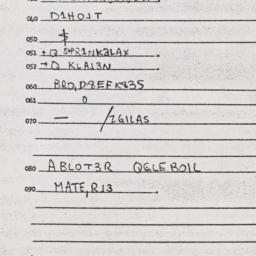 040 D1HOJT
050 $
051 +Q SPR1NK3LAX
052 +Q KLA13N
060 BRD,D8EFK835
061 0
070 — /ZGILAS
080 ABLOT3R QGLEBOIL
090 MATE,R13